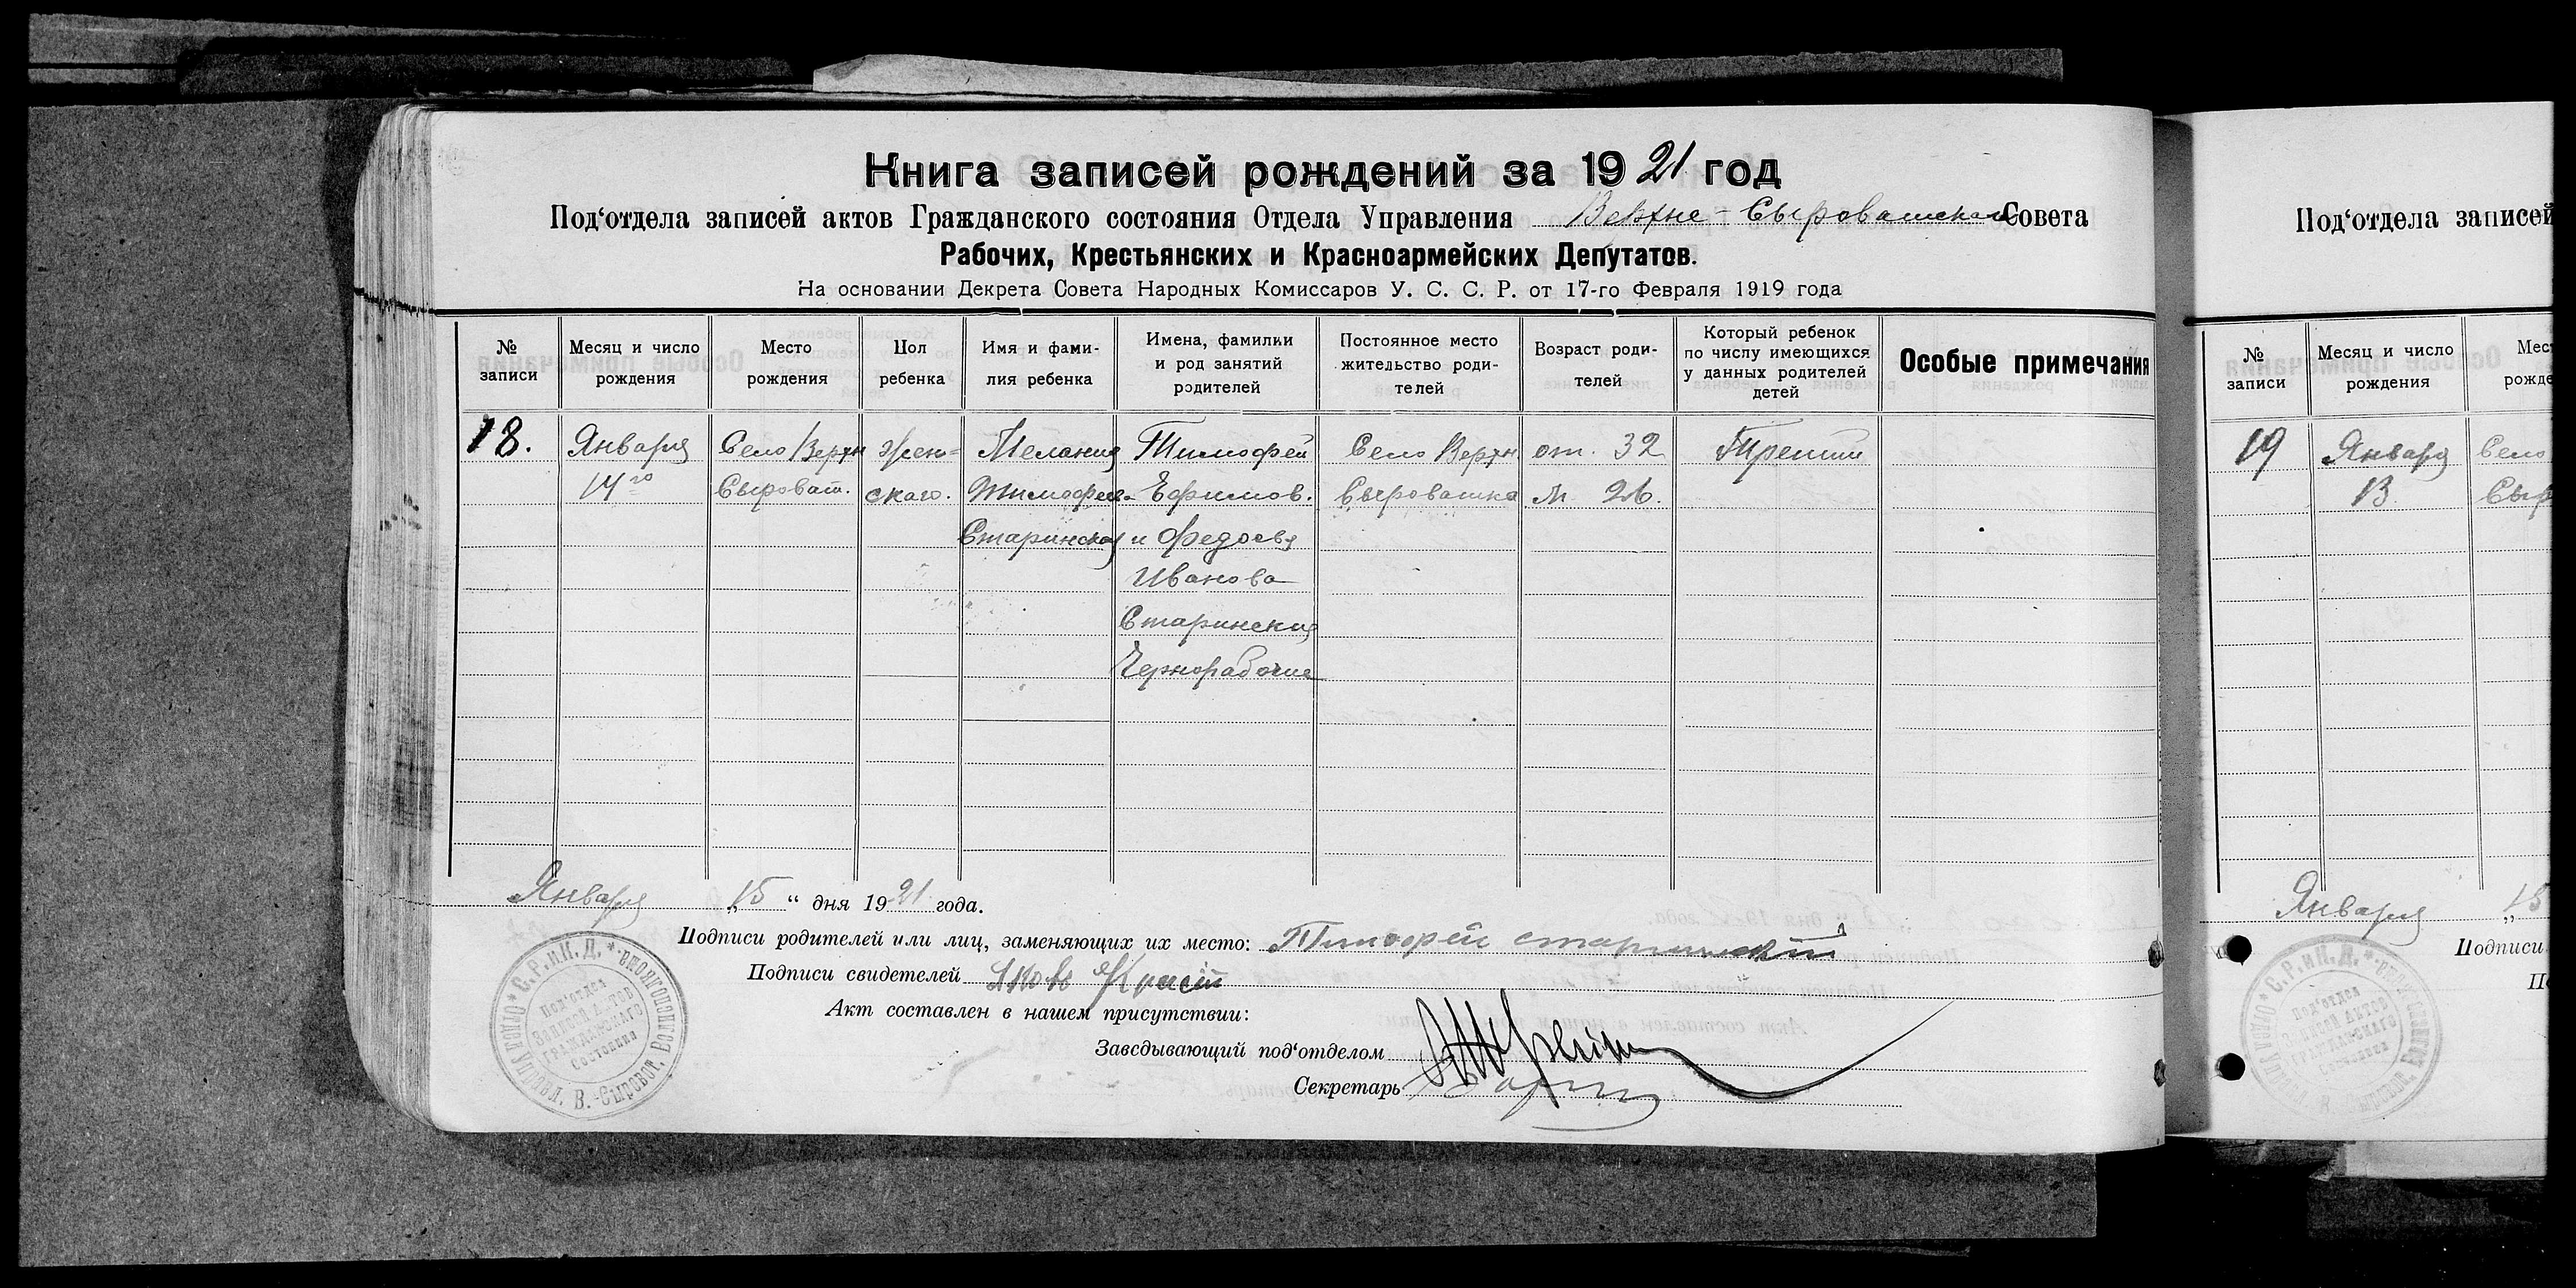 Книга записей рождений за 1921 год
Под‘отдела записей актов Гражданского состояния Отдела Управления Верхне-Сыроватского Совета
Рабочих, Крестьянских и Красноармейских Депутатов.
На основании Декрета Совета Народных Комиссаров У. С. С. Р. от 17-го Февраля 1919 года
№ записи
Месяц и число рождения
Место рождения
Пол ребенка
Имя и фами-
лия ребенка
Имена, фамилии
и род занятий
родителей
Постоянное место
жительство роди-
телей
Возраст роди-
телей
Который ребенок
по числу имеющихся
у данных родителей
детей
Особые примечания
18.
Января
14го
Село Верхн
Сыроват.
жен=
скаго.
Мелания
Тимофее-
Старинская
Тимофей
Ефимов.
и Федосья
Иванова
Старинския
Чернорабочие
Село Верхн
Сыроватка
от. 32
М. 26.
Третий
Января „15“ дня 1921 года.
Подписи родителей или лиц, заменяющих их место: Тимофей старинский
Подписи свидетелей
Акт составлен в нашем присутствии:
Заведывающий под‘отделом
Секретарь
Отдел Управл. В.-Сыроват. Волисполкома * С.Р.иК.Д. *
Под‘отдел
Записей Актов
Гражданского
Состояния
Под‘отдела записей
№ записи
Месяц и число рождения
Мес
рожде
19
Января
13
Село
Сыр
Января „15
Подписи